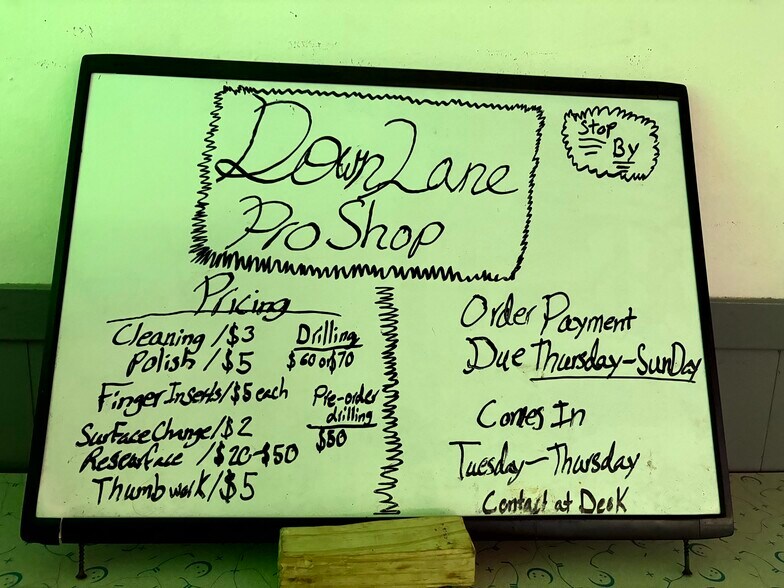 DownLane
Pro Shop
Stop
By
Pricing
Cleaning /$3
Polish /$5
Finger Inserts/$5 each
Surface Change/$2
Researface /$20-$50
Thumb work/$5
Drilling
$60 or $70
Pre-order
drilling
$50
Order Payment
Due Thursday-SunDay
Comes In
Tuesday-Thursday
Contact at Desk